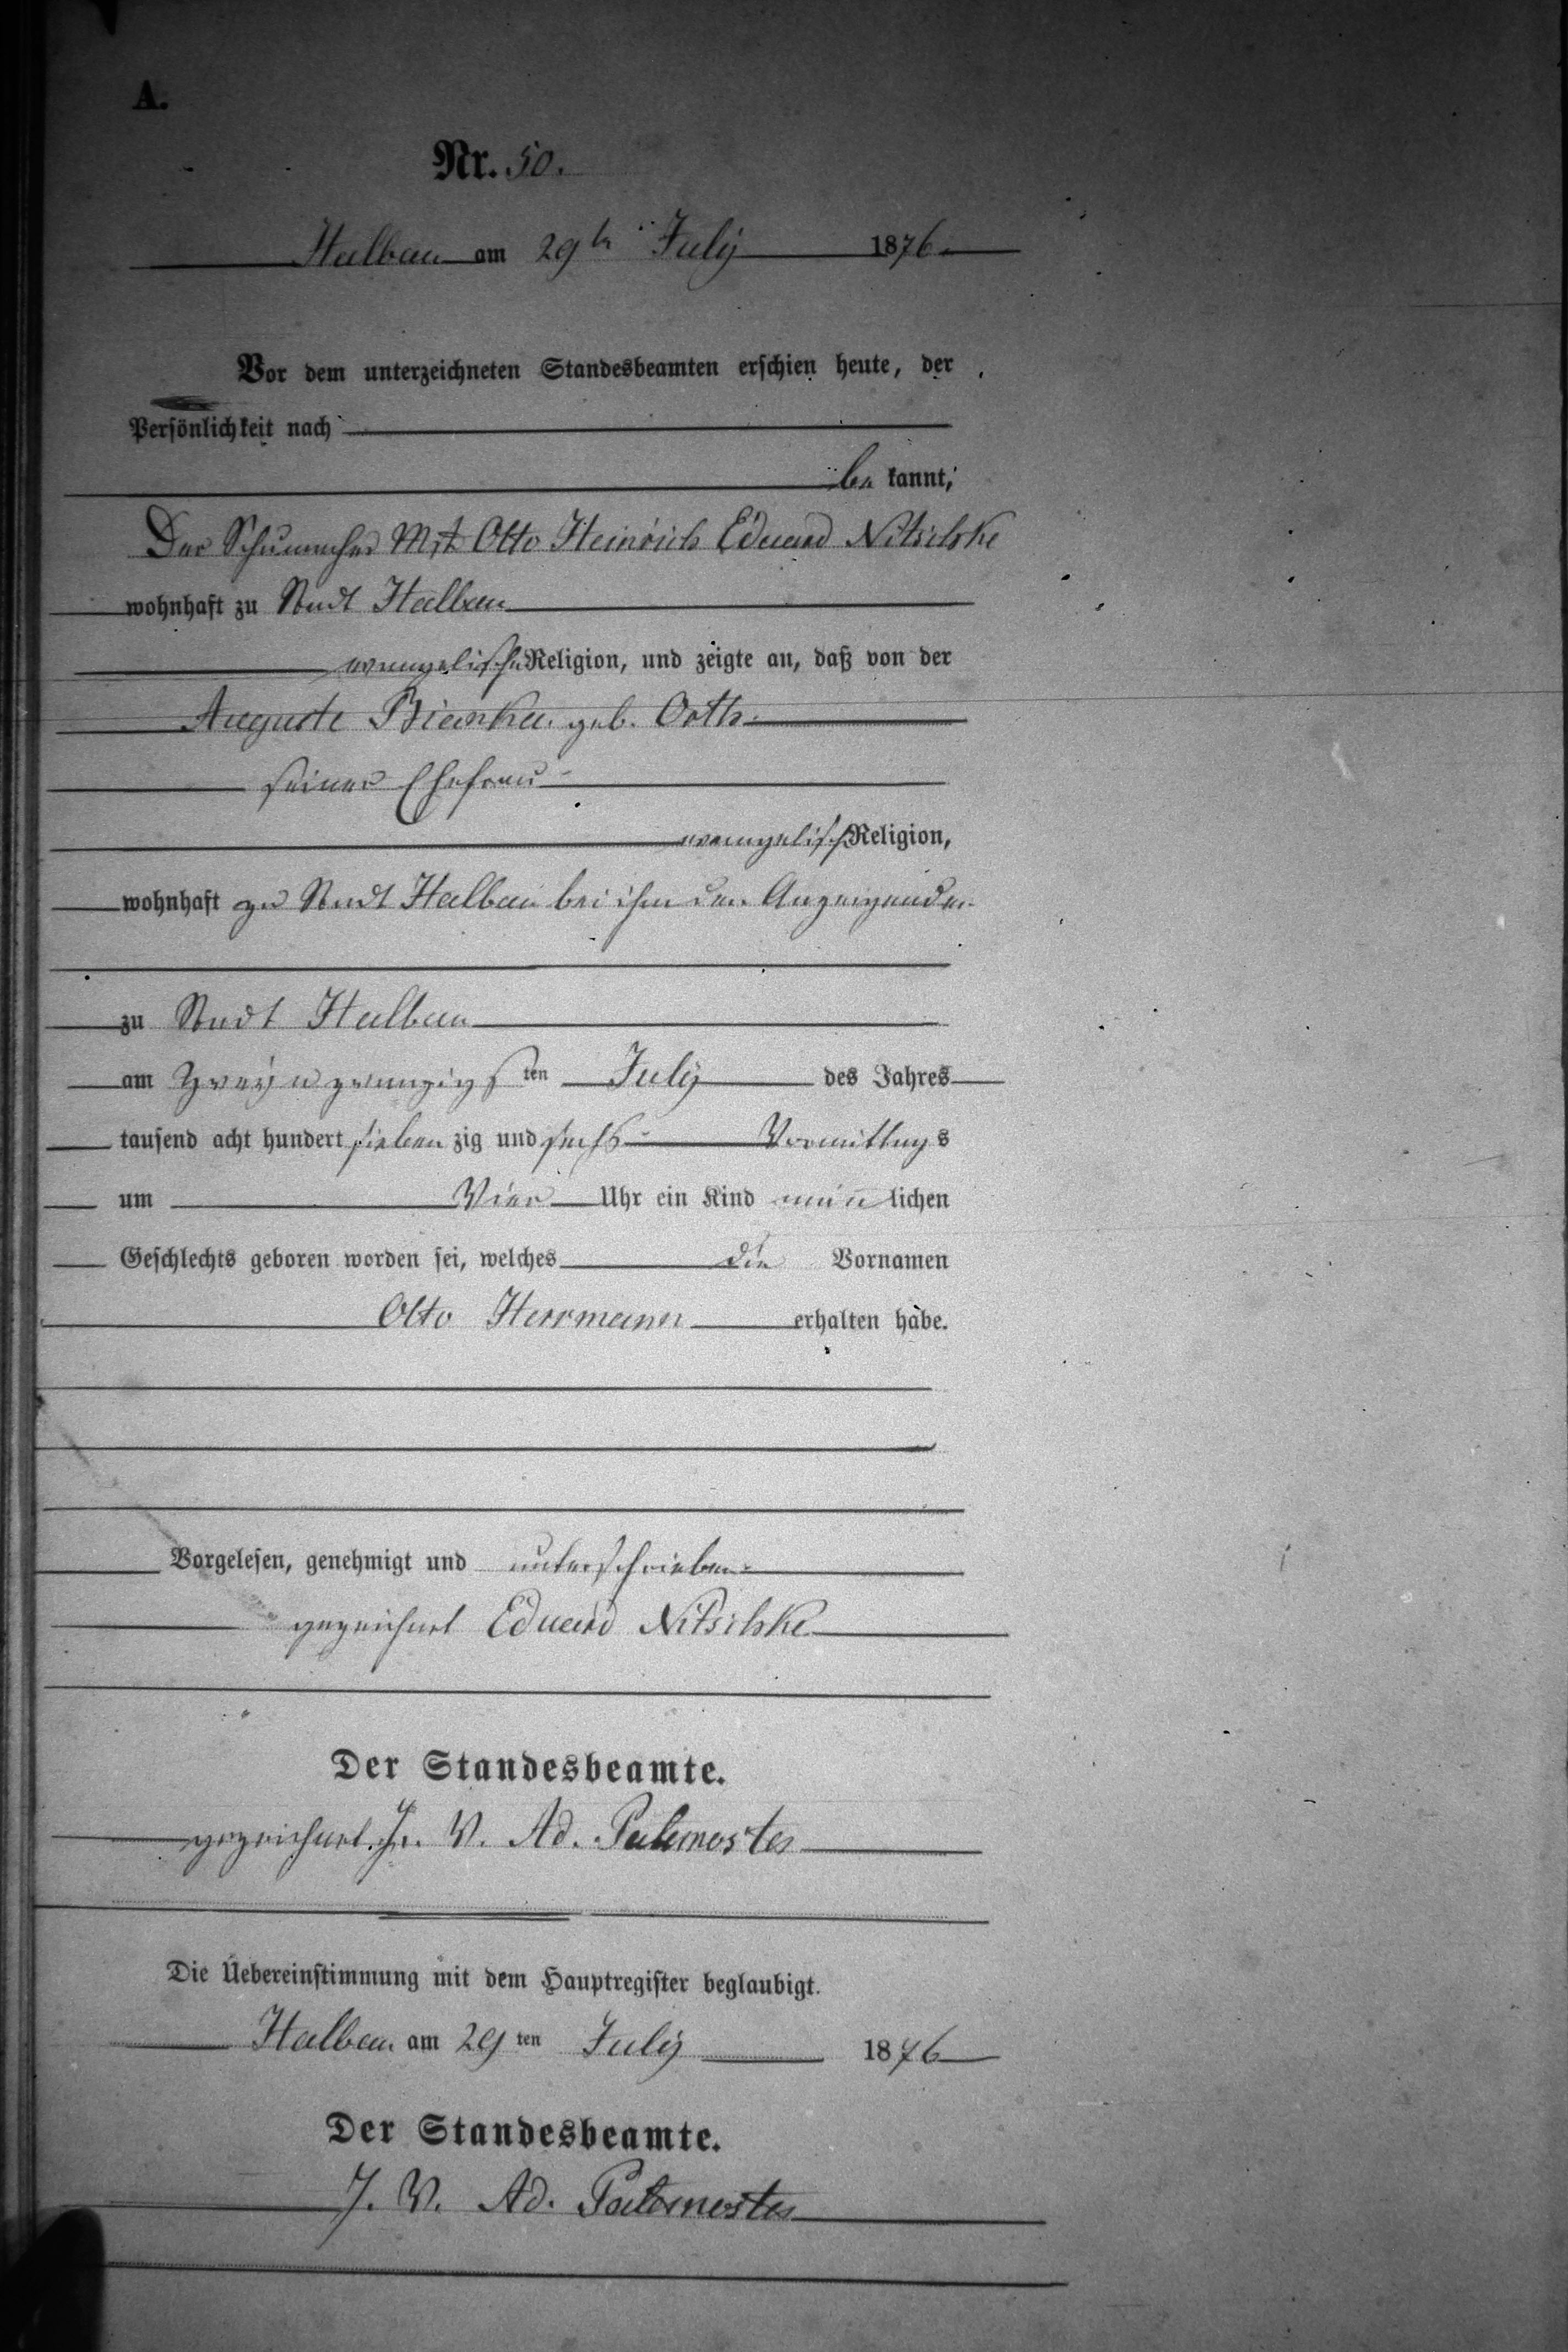 A.
Nr. 50.
Halbau am 29ten July 1876.
Vor dem unterzeichneten Standesbeamten erschien heute, der
Persönlichkeit nach
be kannt,
Der Schumacher Mstr Otto Heinrich Eduard Nitschke
wohnhaft zu Stadt Halbau
evangelische Religion, und zeigte an, daß von der
Auguste Bianka geb. Orth
seiner Ehefrau
evangelisch Religion,
wohnhaft zu Stadt Halbau bei ihm den Anzeigenden
zu Stadt Halbau
am Zwey u zwanzigsten July des Jahres
tausend acht hundert sieben zig und sechs Vormittags
um Vier Uhr ein Kind mänlichen
Geschlechts geboren worden sei, welches die Vornamen
Otto Herrmann erhalten habe.
Vorgelesen, genehmigt und unterschrieben
gezeichnet Eduard Nitschke
Der Standesbeamte.
gezeichnet. In V. Ad. Paternoster
Die Uebereinstimmung mit dem Hauptregister beglaubigt.
Halbau am 29ten July 1876
Der Standesbeamte.
J. V. Ad. Paternoster